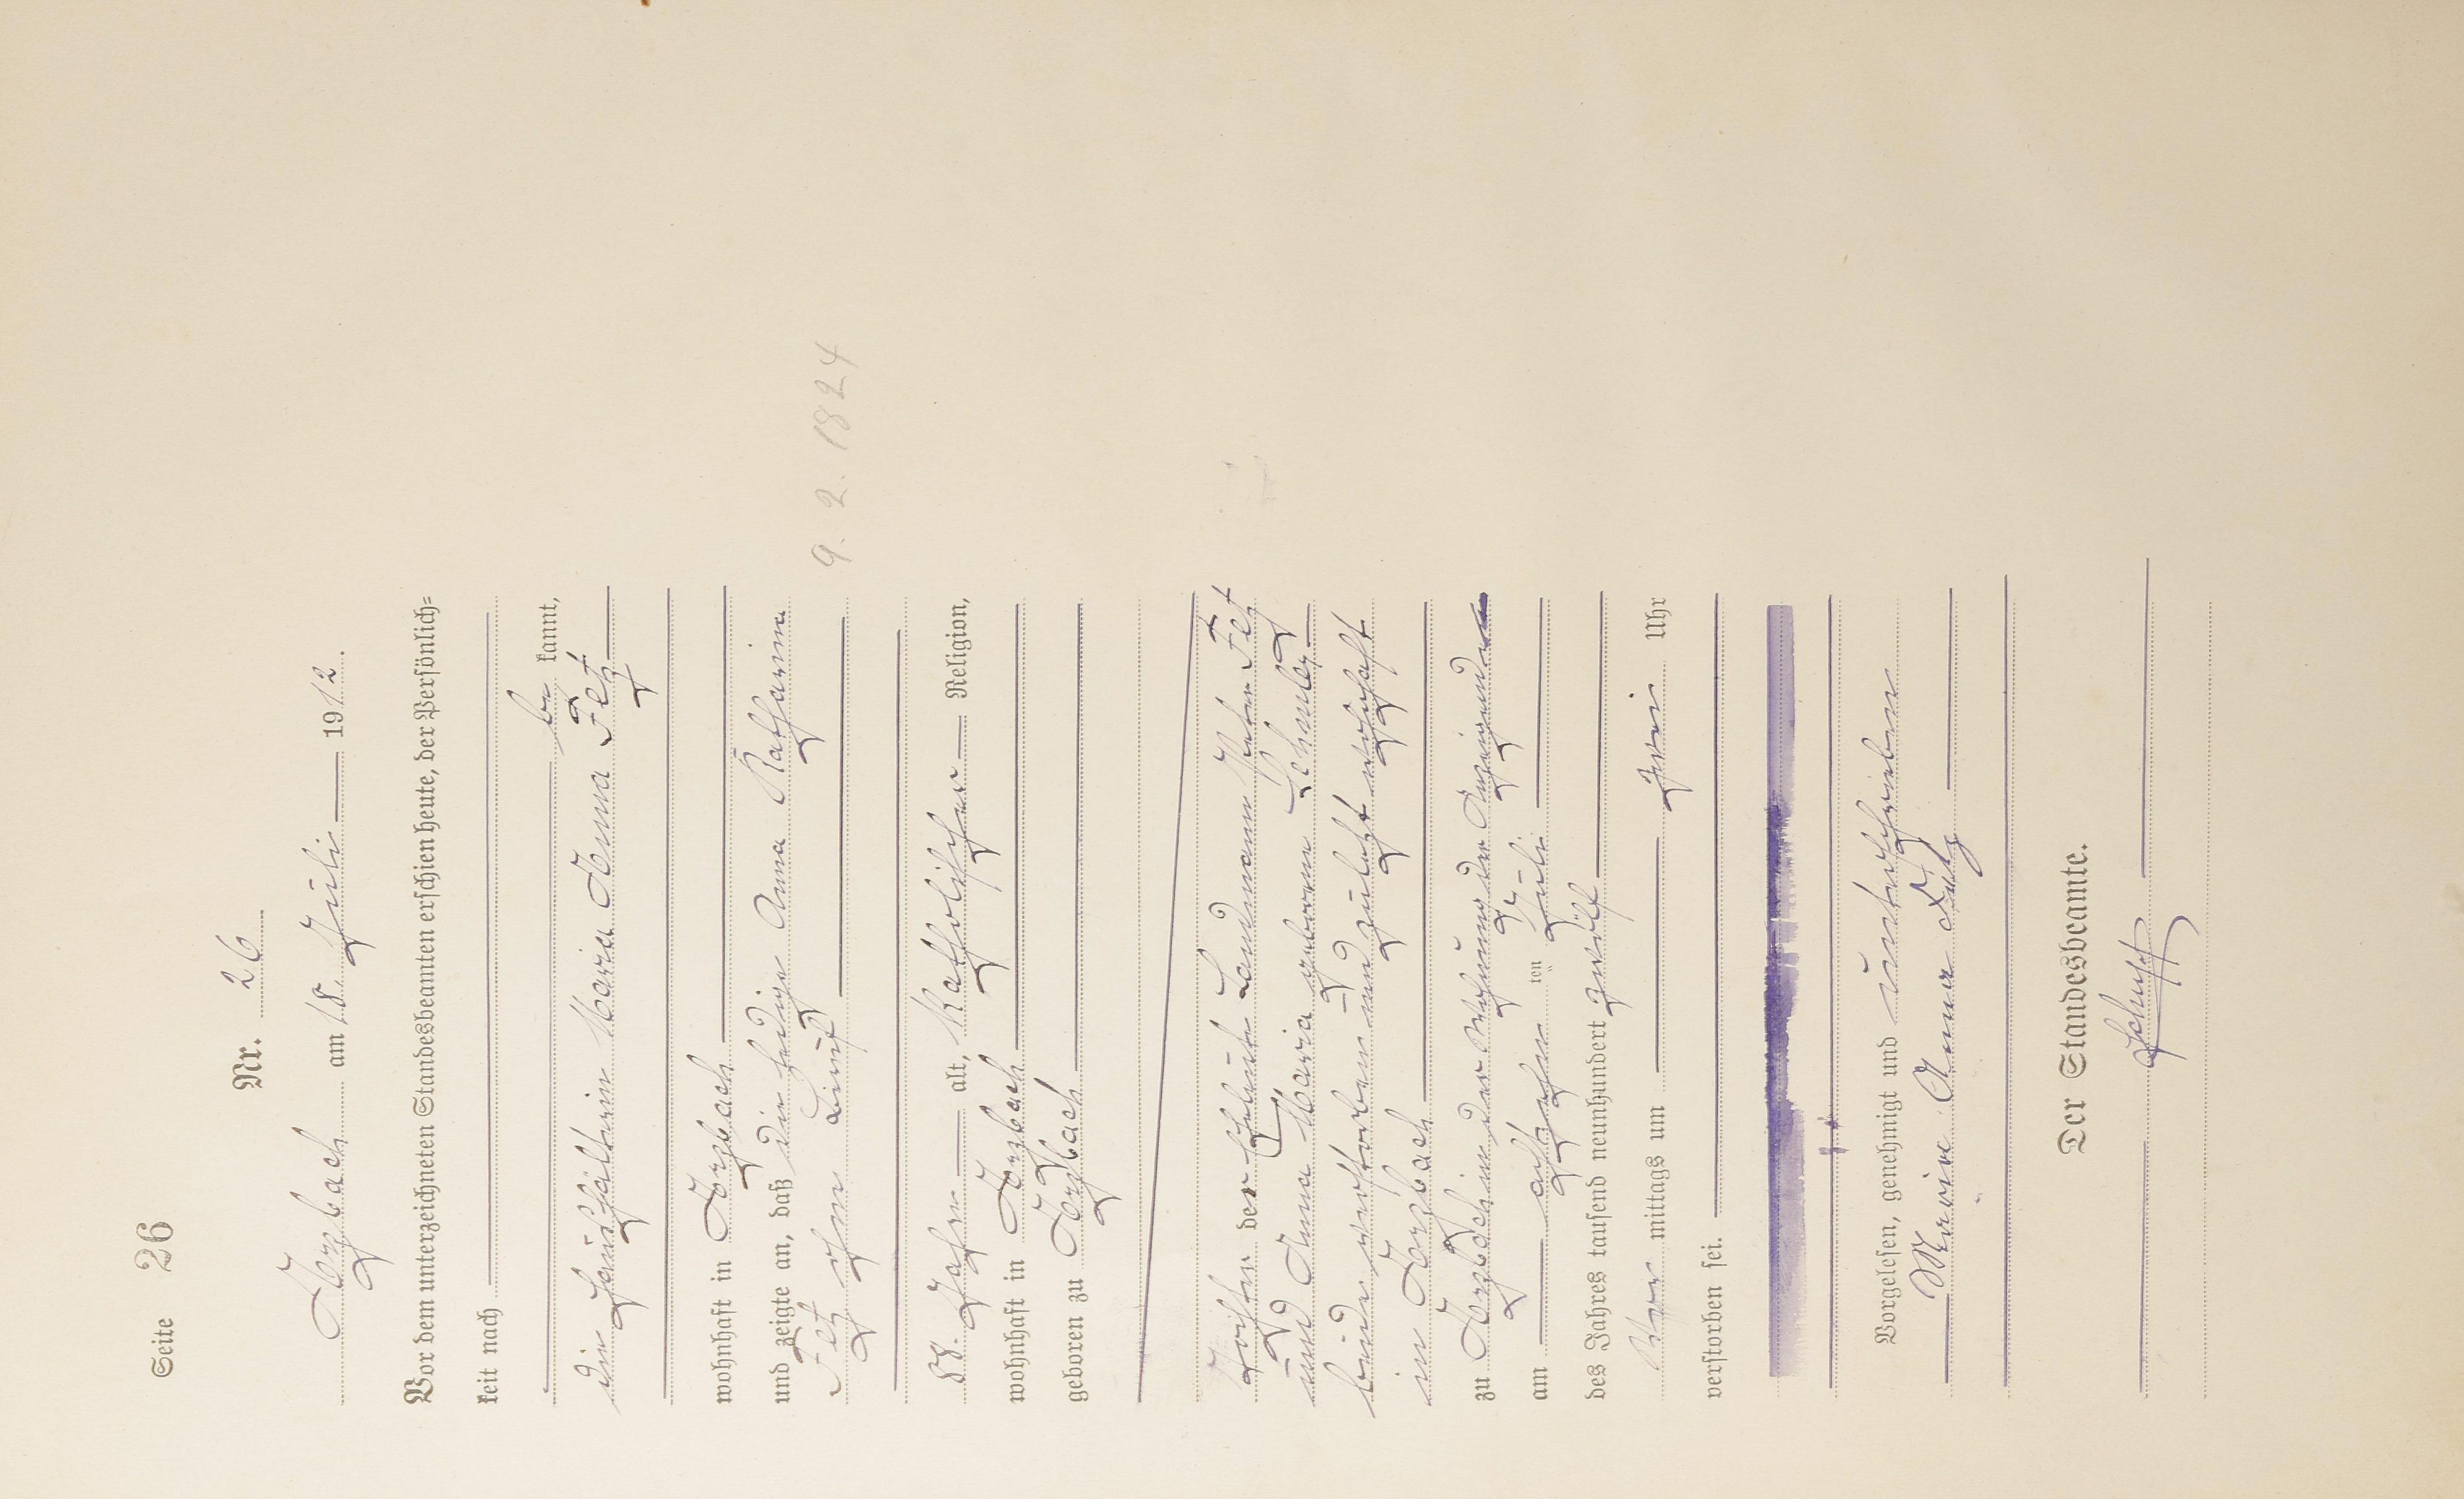 Seite 26
Nr. 26
am 18. Juli 1912.
Vor dem unterzeichneten Standesbeamten erschien heute, der Persönlich=
keit nach
be kannt,
die Haushälterin Maria Anna Fetz
wohnhaft in
und zeigte an, daß die ledige Anna Katharina
Fetz ohne Beruf
88 Jahre alt, katholischer Religion,
wohnhaft in
geboren zu
Tochter der Eheleute Landmann Peter Fetz
und Anna Maria geborene
beide verstorben und zuletzt wohnhaft
in
zu in der Wohnung der Anzeigenden
am achtzehn ten Juli
des Jahres tausend neunhundert zwölf
Vor mittags um zwei Uhr
verstorben sei.
Vorgelesen, genehmigt und unterschrieben
Maria Anna Fetz
Der Standesbeamte.
9. 2. 1824